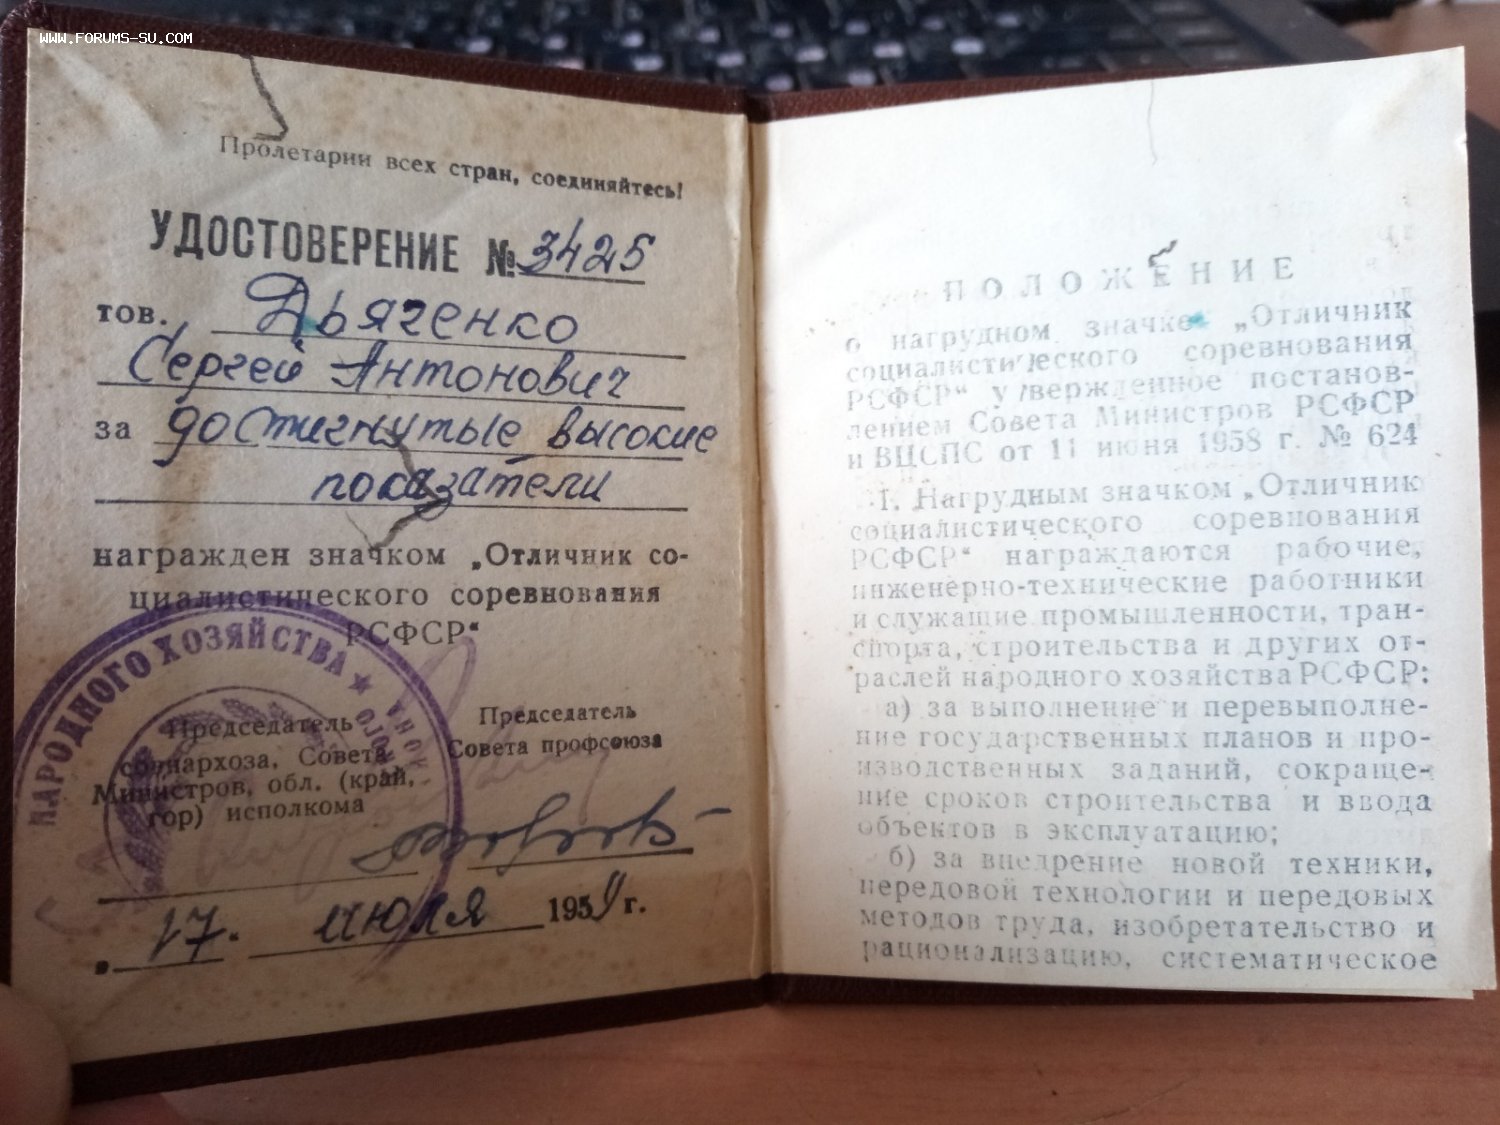 www.forums-su.com
Пролетарии всех стран, соединяйтесь!
УДОСТОВЕРЕНИЕ № 3425
тов. Дьяченко
Сергей Антонович
за достигнутые высокие
показатели
награжден значком „Отличник со-
циалистического соревнования
РСФСР“
НАРОДНОГО ХОЗЯЙСТВА ★
Председатель
совнархоза, Совета
Министров, обл. (край,
гор) исполкома
Председатель
Совета профсоюза
„ 17. июля 1959 г.
ПОЛОЖЕНИЕ
о нагрудном значке „Отличник
социалистического соревнования
РСФСР“ утвержденное постанов-
лением Совета Министров РСФСР
и ВЦСПС от 11 июня 1958 г. № 624
1. Нагрудным значком „Отличник
социалистического соревнования
РСФСР“ награждаются рабочие,
инженерно-технические работники
и служащие промышленности, тран-
спорта, строительства и других от-
раслей народного хозяйства РСФСР:
а) за выполнение и перевыполне-
ние государственных планов и про-
изводственных заданий, сокраще-
ние сроков строительства и ввода
объектов в эксплуатацию;
б) за внедрение новой техники,
передовой технологии и передовых
методов труда, изобретательство и
рационализацию, систематическое